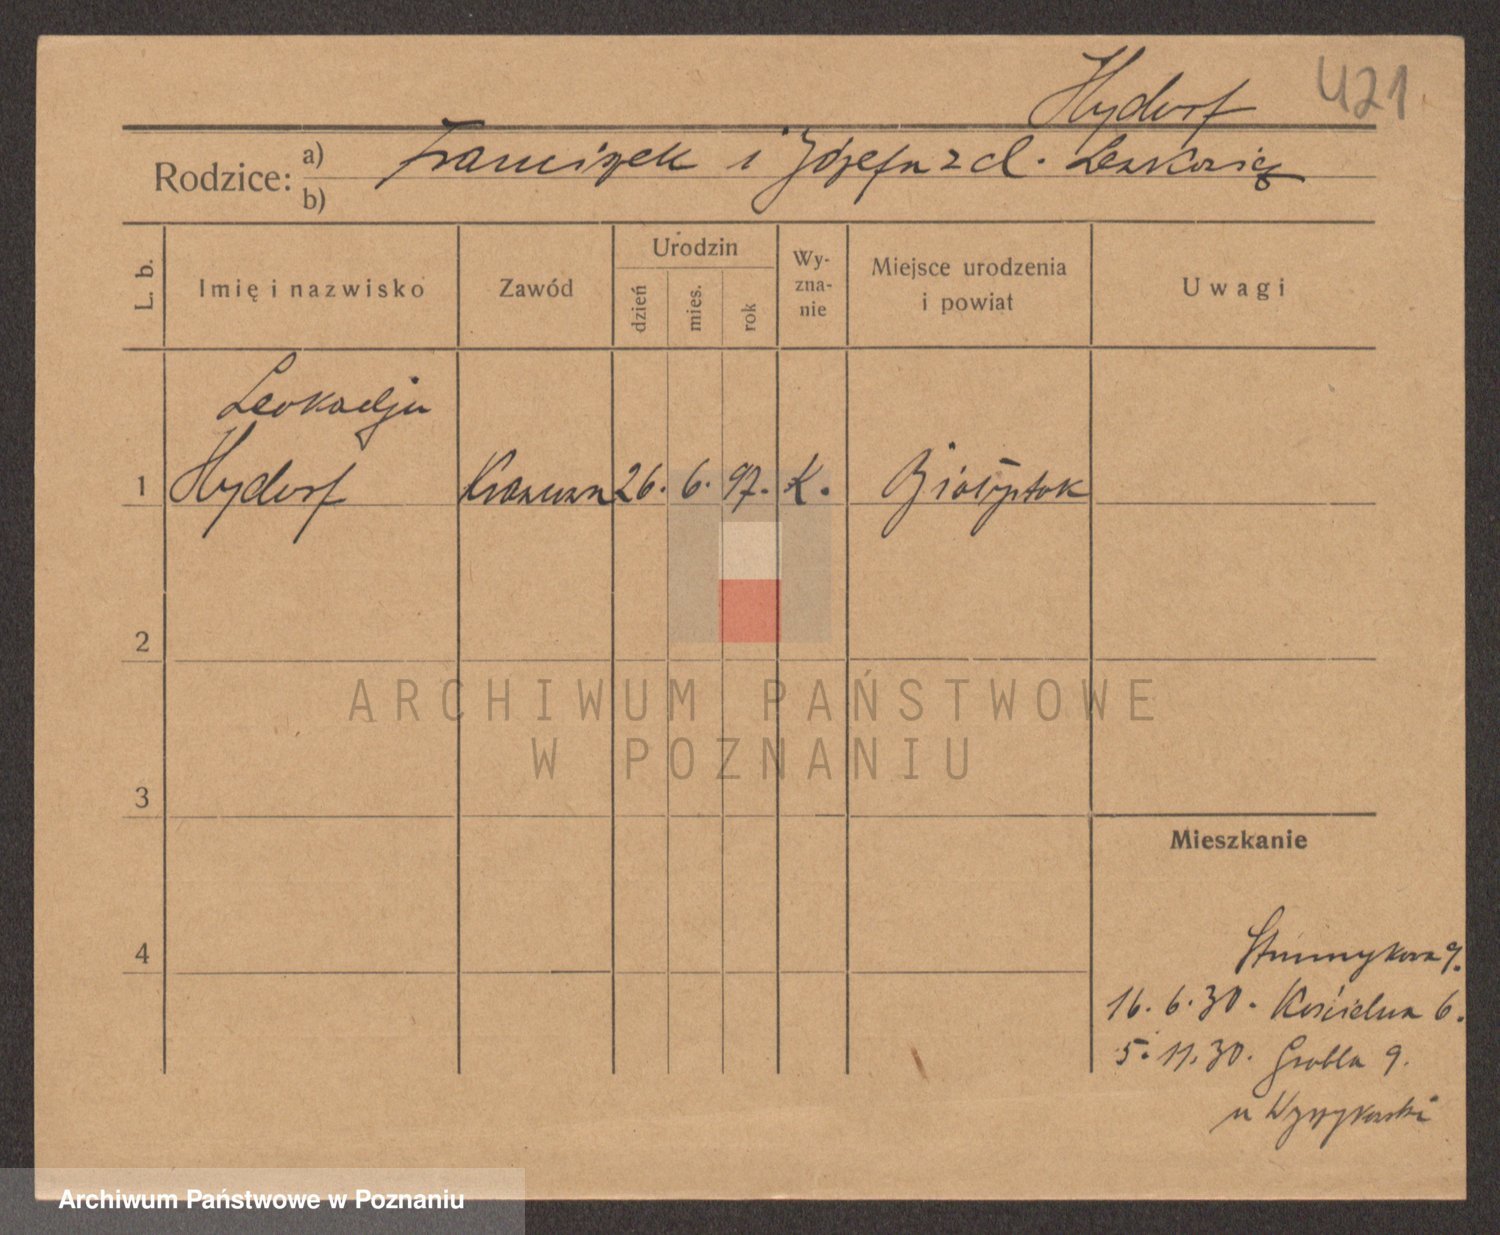 Hydorf 421
Rodzice: a) Franciszek i Józefa z d.
b)
L. b.
Imię i nazwisko
Zawód
Urodzin
dzień
mies.
rok
Wy-
zna-
nie
Miejsce urodzenia
i powiat
Uwagi
Leokadja
1 Hydorf 26. 6. 97. K. Białystok
2
3
4
Mieszkanie
9.
16. 6. 30. Kościelna 6.
5. 11. 30. Grobla 9.
u
ARCHIWUM PAŃSTWOWE
W POZNANIU
Archiwum Państwowe w Poznaniu